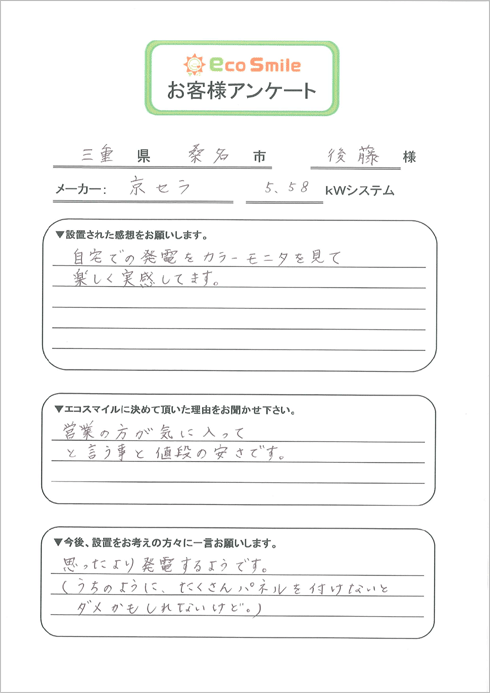 eco Smile
お客様アンケート
三重 県 桑名 市 後藤 様
メーカー: 京セラ 5、58 kWシステム
▼設置された感想をお願いします。
自宅での発電をカラーモニタを見て
楽しく実感してます。
▼エコスマイルに決めて頂いた理由をお聞かせ下さい。
営業の方が気に入って
と言う事と値段の安さです。
▼今後、設置をお考えの方々に一言お願いします。
思ったより発電するようです。
(うちのように、たくさんパネルを付けないと
ダメかもしれないけど。)